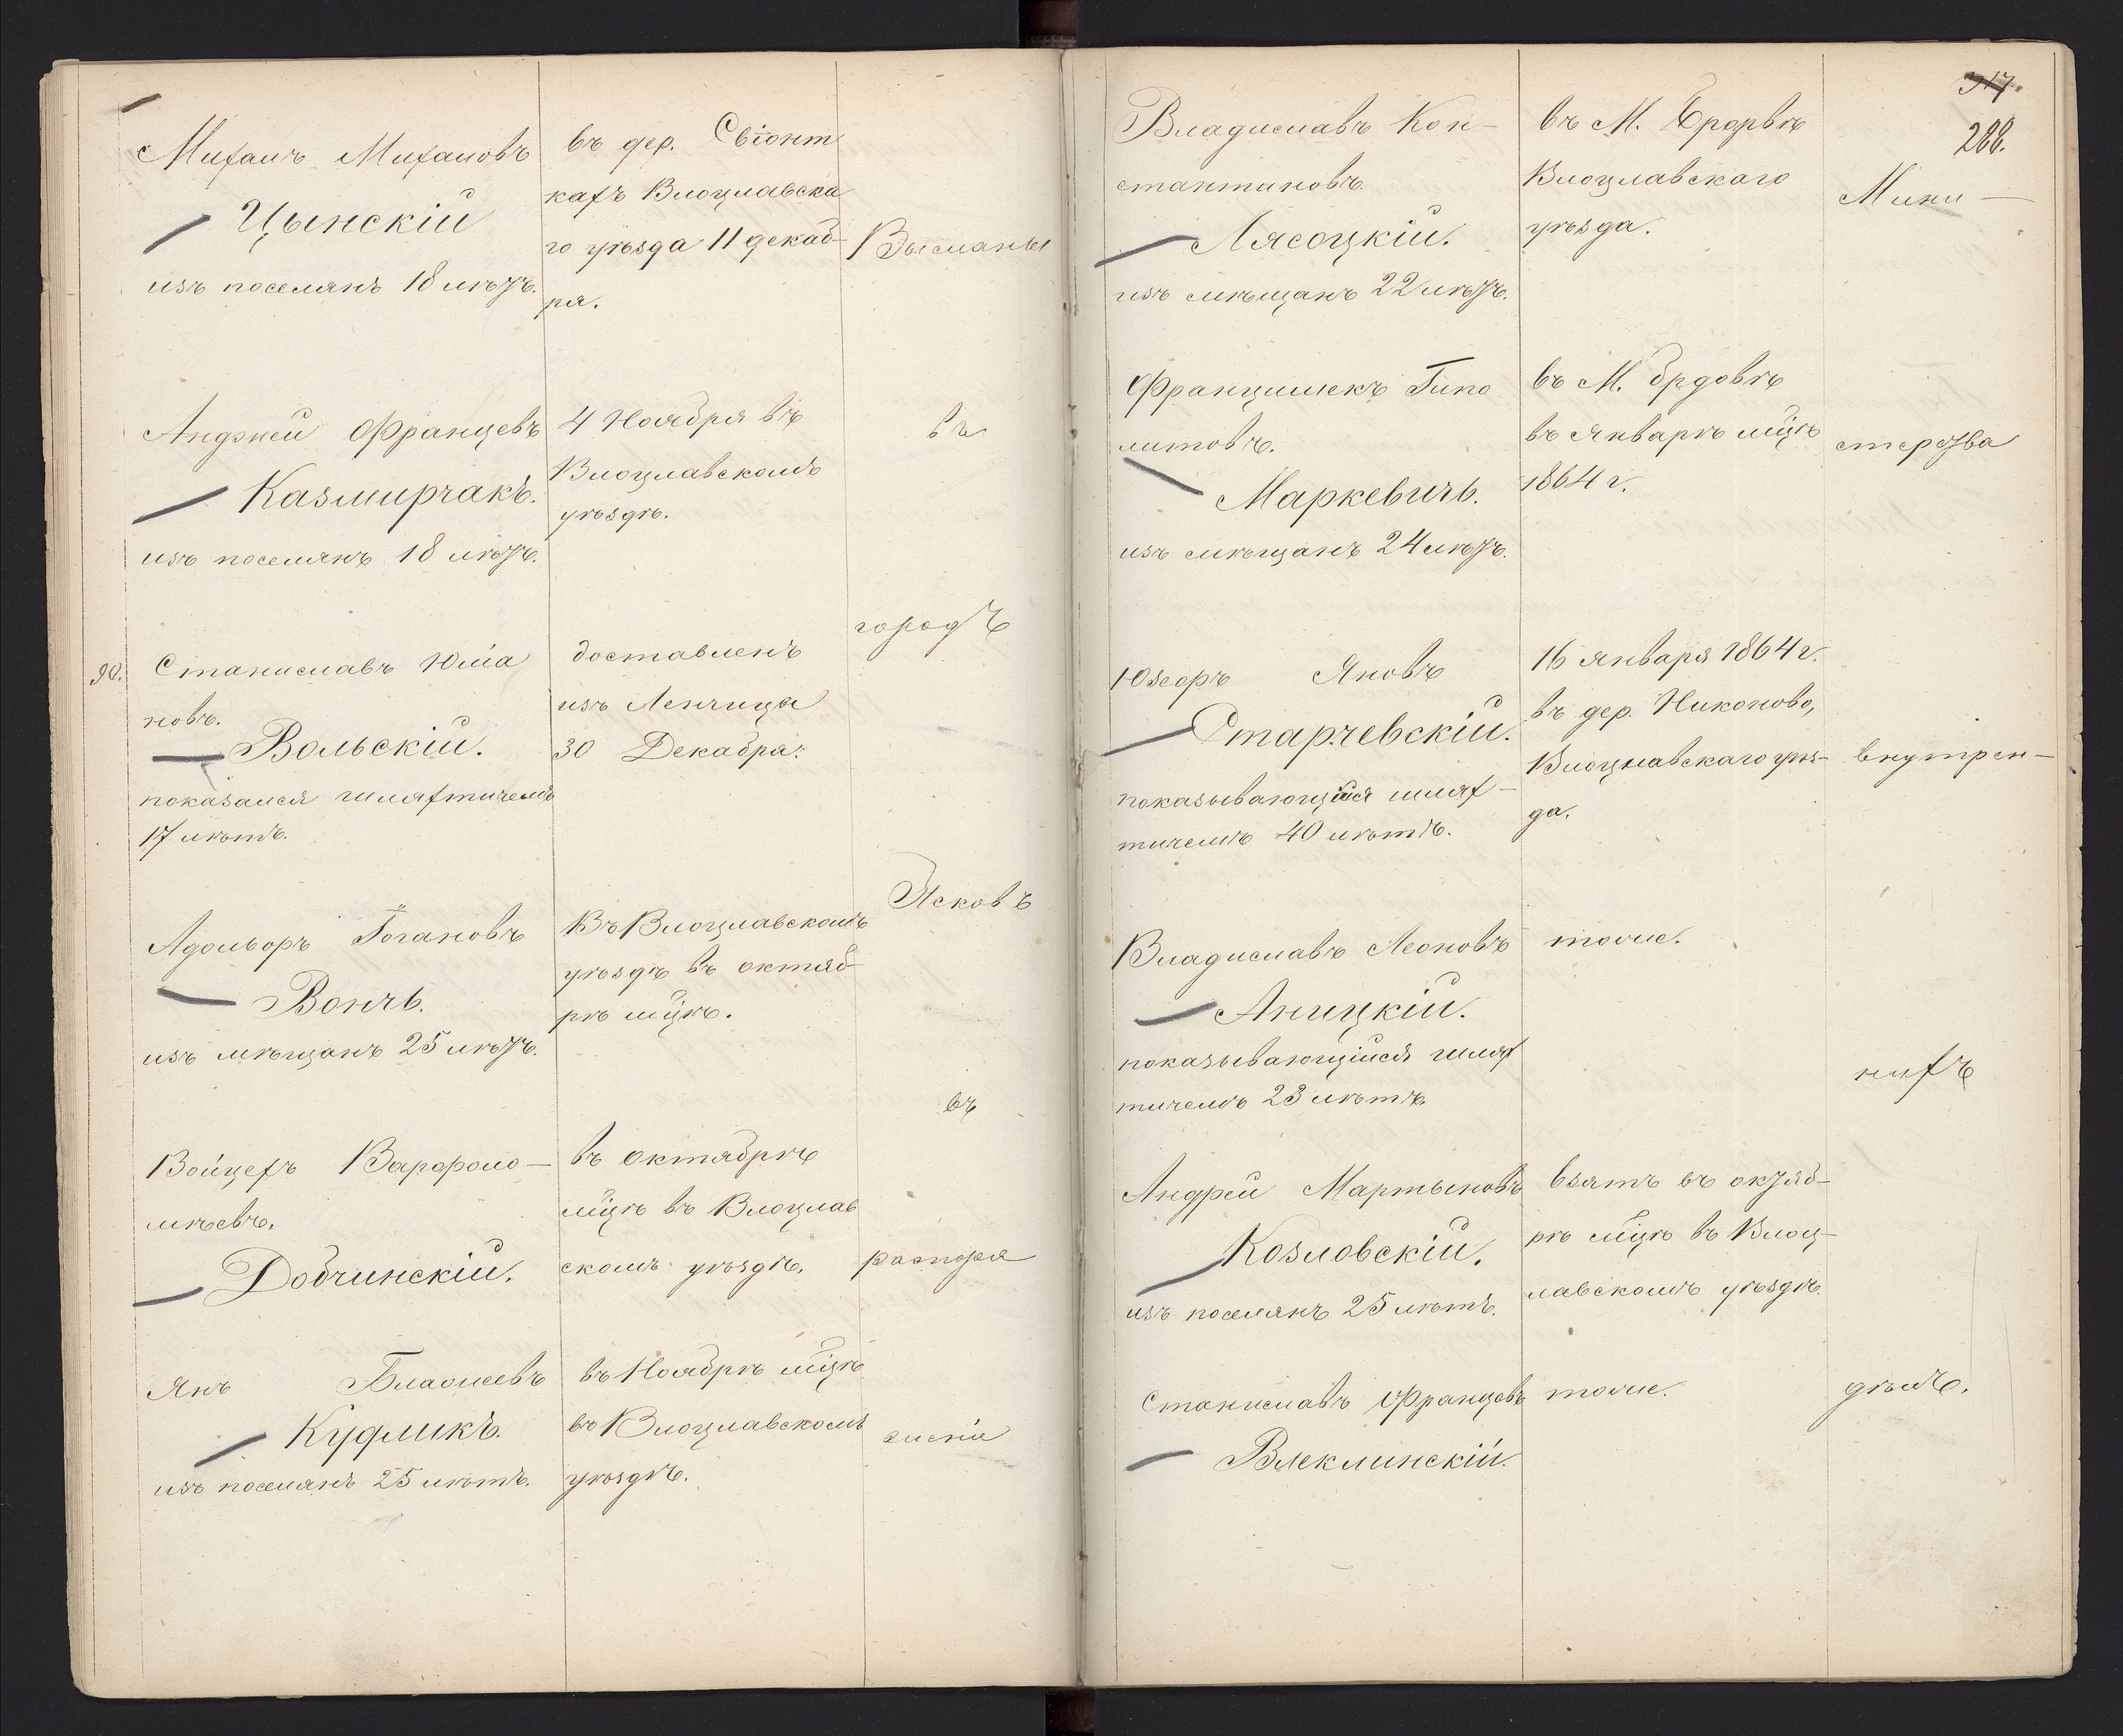 Михаилъ Михаиловъ
Цынскій
изъ поселянъ 18 лѣтъ.
въ дер. Свіонт
кахъ Влоцлавска
го уѣзда 11 декаб-
ря.
Высланы
Анджей Францевъ
Казмирчакъ.
изъ поселянъ 18 лѣтъ.
4 Ноября въ
Влоцлавскомъ
уѣздѣ.
въ
90.
Станиславъ Юлiа
новъ.
Вольскій.
показался шляхтичемъ
17 лѣтъ.
доставленъ
изъ Ленчицы
30 Декабря.
городъ
Адольфъ Iогановъ
Вончъ.
изъ мѣщанъ 25 лѣтъ.
Въ Влоцлавскомъ
уѣздѣ въ октяб-
рѣ мцѣ.
Псковъ
Войцехъ Варфоло-
мѣевъ.
Добчинскій.
въ октябрѣ
мцѣ въ Влоцлав
скомъ уѣздѣ.
въ
распоря
Янъ Блажеевъ
Кудликъ.
изъ поселянъ 25 лѣтъ.
въ Ноябрѣ мцѣ
въ Влоцлавскомъ
уѣздѣ.
женіе
317.
288.
Владиславъ Кон-
стантиновъ.
Лясоцкій.
изъ мѣщанъ 22 лѣтъ.
въ М.
Влоцлавскаго
уѣзда.
Мини-
Францишекъ Гипо
литовъ.
Маркевичъ.
изъ мѣщанъ 24 лѣтъ.
въ М. Брдовѣ
въ Январѣ мцѣ
1864 г.
стерства
Юзефъ Яновъ
Старчевскій.
показывающійся шлях-
тичемъ 40 лѣтъ.
16 января 1864 г.
въ дер. Никоново,
Влоцлавскаго уѣз-
да.
внутрен-
Владиславъ Леоновъ
Аницкій.
показывающійся шлях
тичемъ 23 лѣтъ.
тоже.
нихъ
Андрей Мартыновъ
Козловскій.
изъ поселянъ 25 лѣтъ.
взятъ въ октяб-
рѣ мцѣ въ Влоц-
лавскомъ уѣздѣ.
Станиславъ Францовъ
Влеклинскій.
тоже.
дѣлъ.